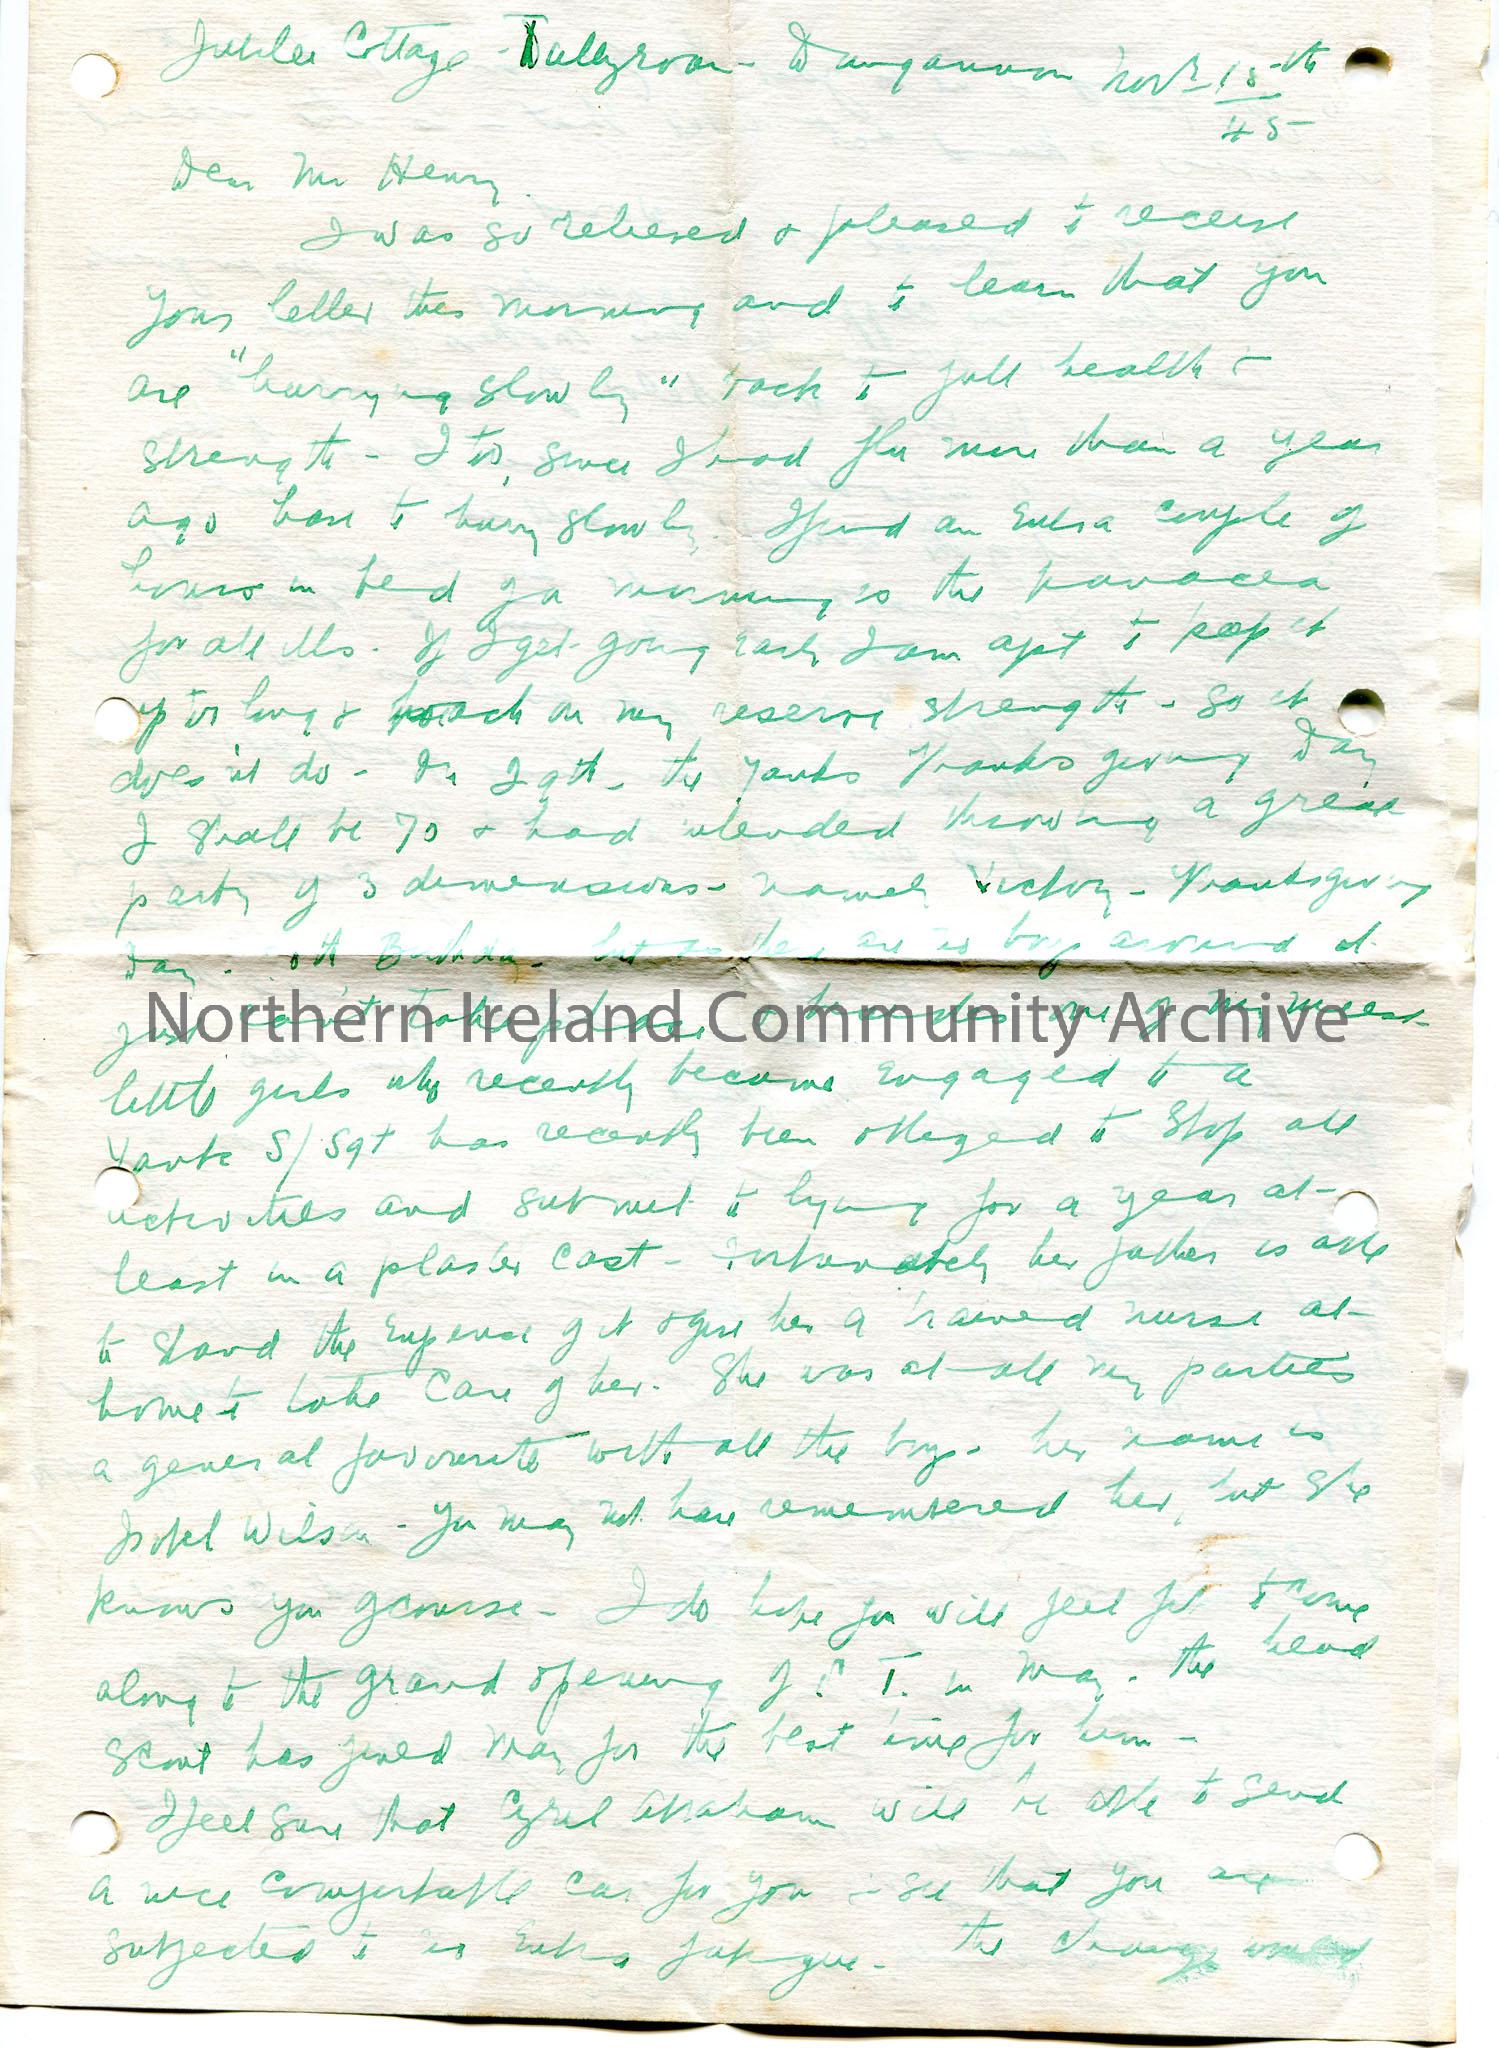 Jubilee Cottage - Tullyroan - Dungannon Novr 18th
45
Dear Mr Henry.
I was so relieved & pleased to receive
your letter this morning and to learn that you
are "hurrying slowly" back to full health &
strength - I too, since I had flu more than a year
ago have to hurry slowly. I find an extra couple of
hours in bed of a morning is the panacea
for all ills. If I get going early I am apt to keep it
up too long & poach on my reserve strength - so it
does'nt do - On 29th - the Yanks Thanksgiving Day
I shall be 70 & had intended throwing a great
party of 3 dimensions - namely Victory - Thanksgiving
Day - 70th Birthday - but as there are no boys around it
just can't take place & besides one of my nicest
little girls who recently became engaged to a
Yank S/Sgt has recently been obliged to stop all
activities and submit to lying for a year at-
least in a plaster cast - fortunately her father is able
to stand the expense of it & give her a trained nurse at-
home to take care of her. She was at all my parties
a general favourite with all the boys - her name is
Isobel Wilson - You may not have remembered her, but she
knows you of course - I do hope you will feel fit to come
along to the grand opening of C.T. in May - the head
scout has fixed May for the best time for him -
I feel sure that Cyril Abraham will be able to send
a nice comfortable car for you & see that you are
subjected to no extra fatigue - the change would
Northern Ireland Community Archive